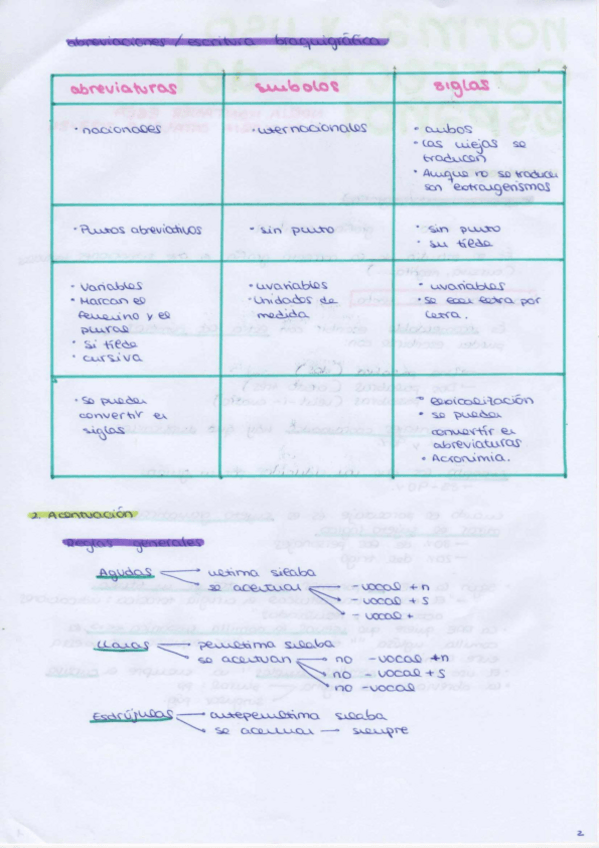 abreviaciones / escritura braquigráfica
abreviaturas
símbolos
siglas
· nacionales
· internacionales
· ambos
· Las viejas se
traducen
· Aunque no se traducen
son extranjerismos
· Puntos abreviativos
· sin punto
· sin punto
· sin tilde
· variables
· Marcan el
femenino y el
plural
· Sí tilde
· cursiva
· invariables
· Unidades de
medida
· invariables
· Se leen letra por
letra.
· Se pueden
convertir en
siglas
· Lexicalización
· se pueden
convertir en
abreviaturas
· Acronimia.
2. Acentuación
Reglas generales
Agudas → última sílaba
→ se acentúan → - vocal + n
→ - vocal + s
→ - vocal +
Llanas → penúltima sílaba
→ se acentúan → no - vocal + n
→ no - vocal + s
→ no - vocal
Esdrújulas → antepenúltima sílaba
→ se acentúan → siempre
2